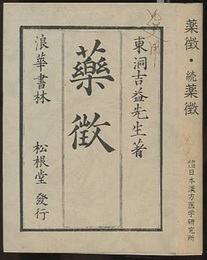 東洞吉益先生著
藥徴
浪華書林 松根堂 發行
薬徴・続薬徴
日本漢方医学研究所